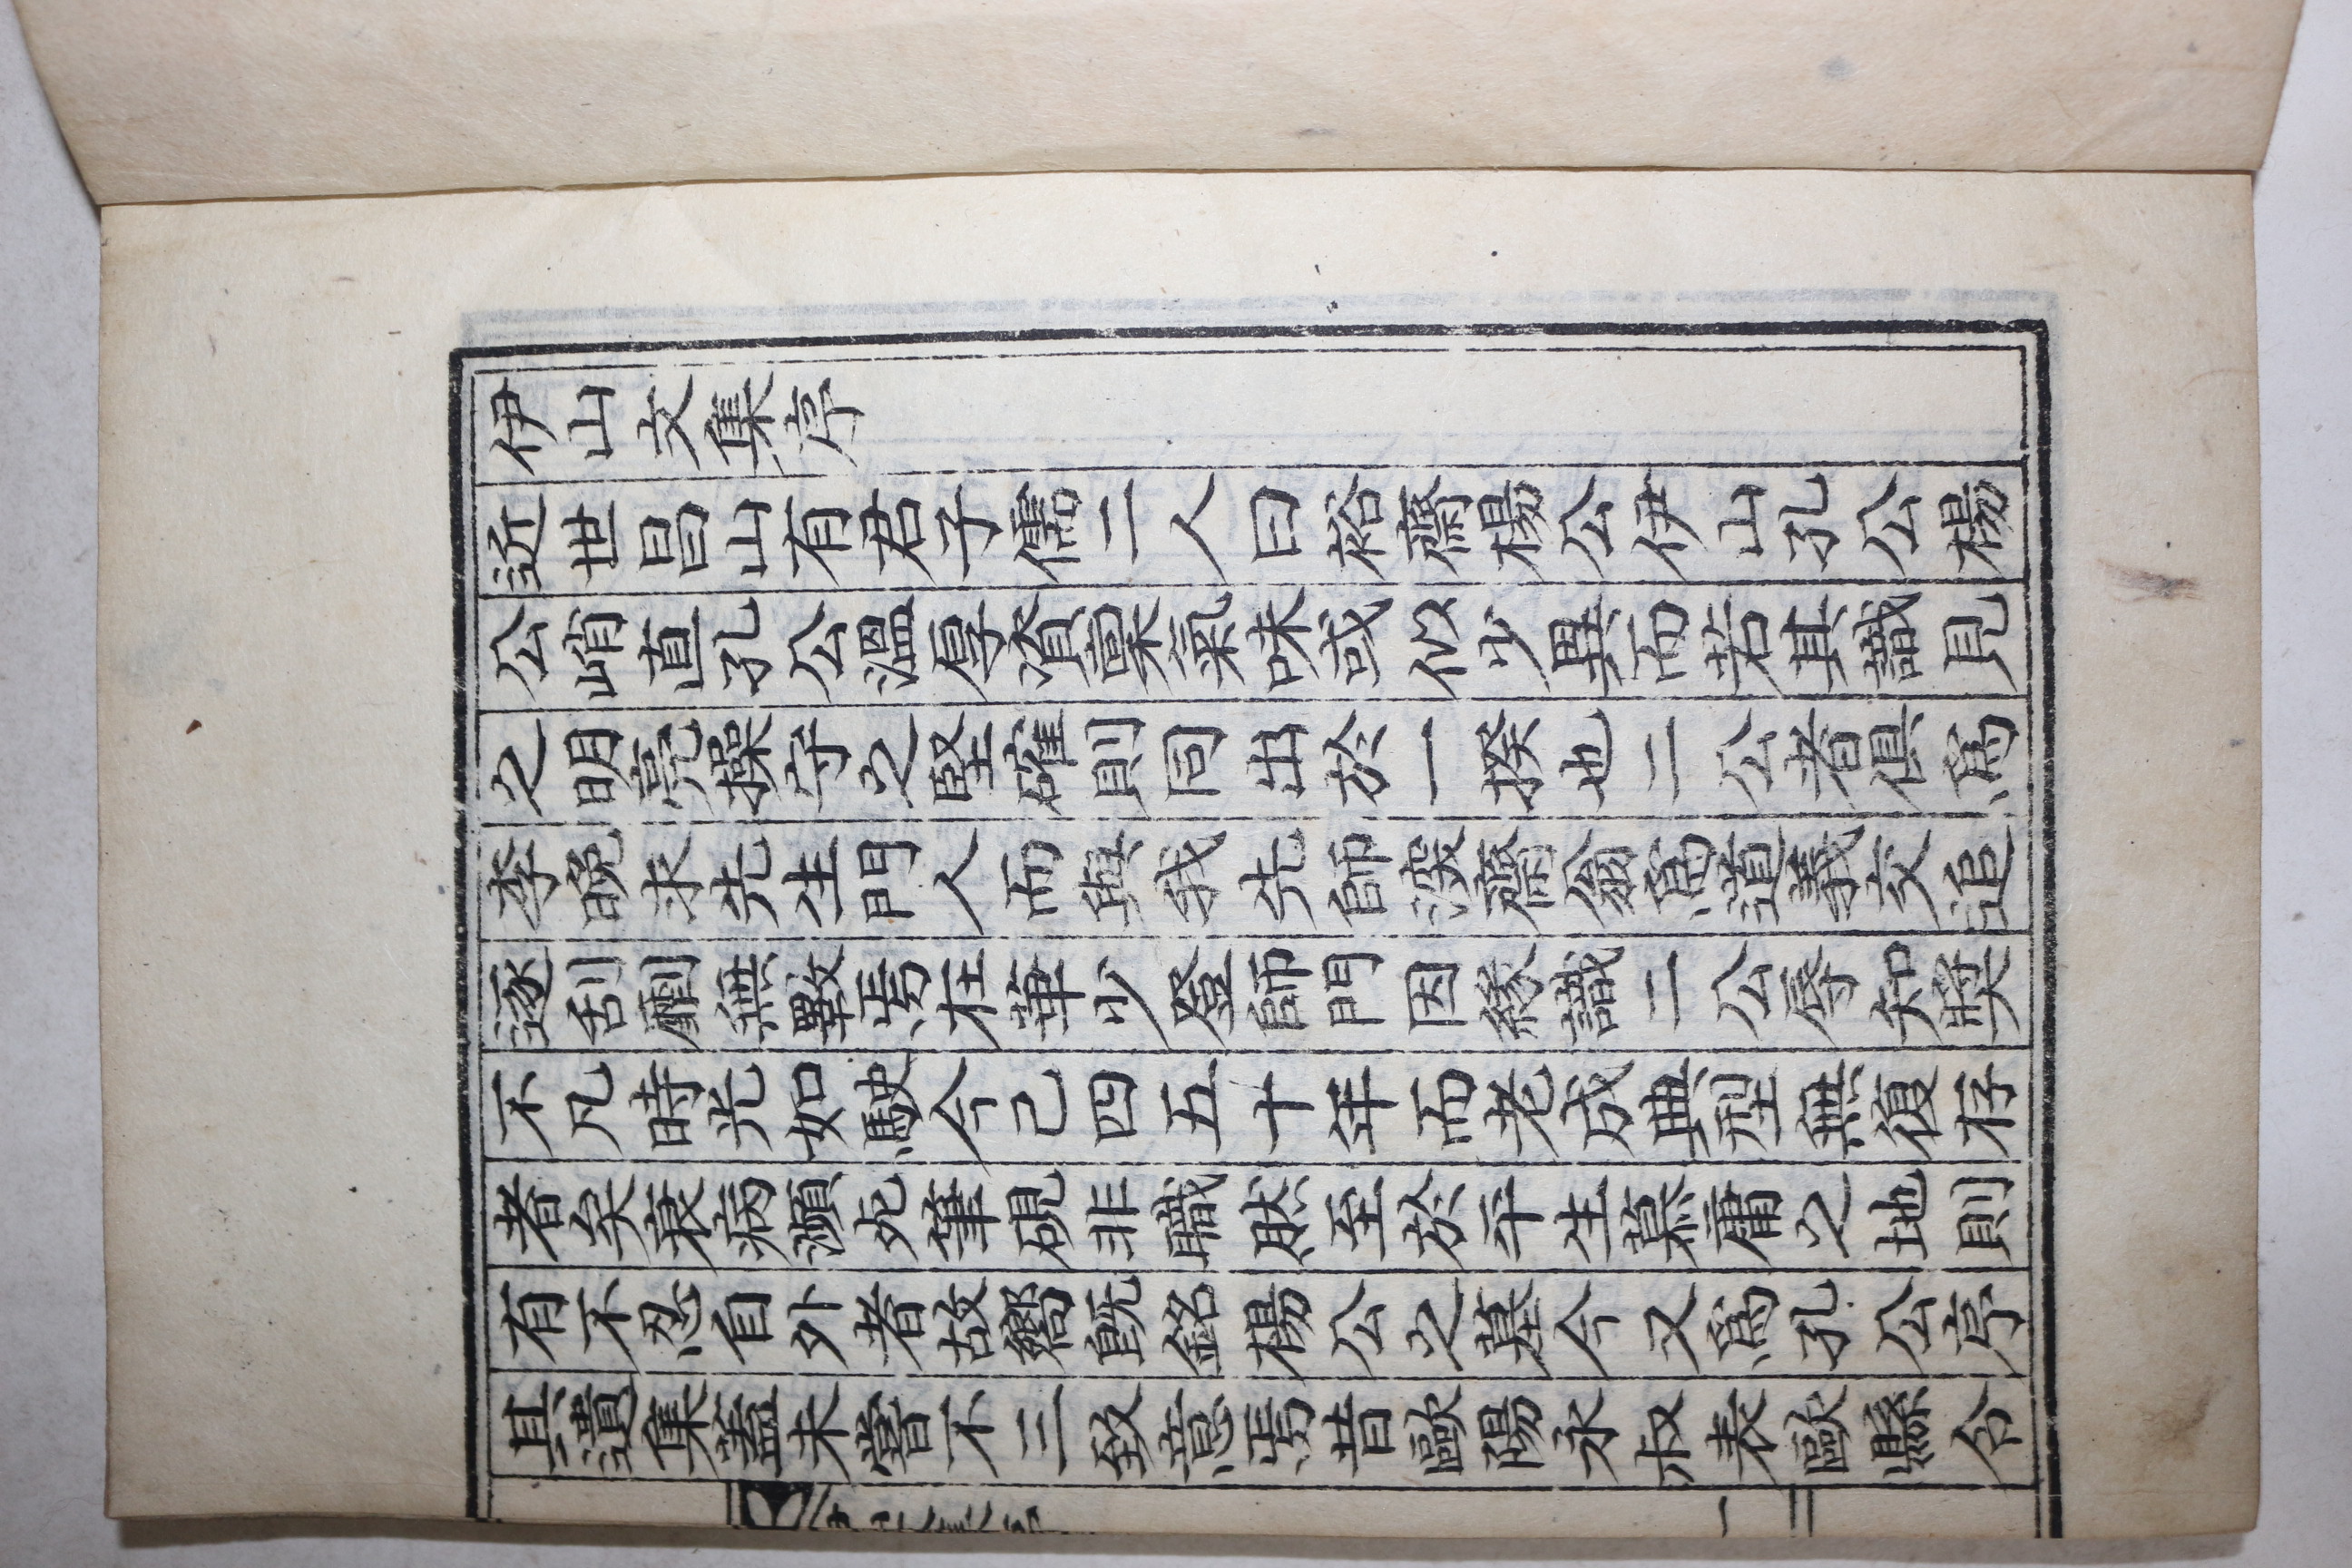 伊山文集序
近世昌山有君子儒二人曰裕齋楊公伊山孔公楊
公峭直孔公溫厚資稟氣味或似少異而若其識見
之明亮操守之堅確則同出於一揆也二公者俱爲
李晩求先生門人而與我先師深齋翁爲道義交追
逐刮劘無斁焉在華少登師門因緣識二公辱知奬
不凡時光如駛今己四五十年而老成典型無復存
者矣衰病瀕死筆硯非職然至於平生慕庸之地則
有不忍自外者故嚮旣銘楊公之墓今又爲孔公序
其遺集蓋未嘗不三致意焉昔歐陽永叔表歐縣令
伊山文集序 一